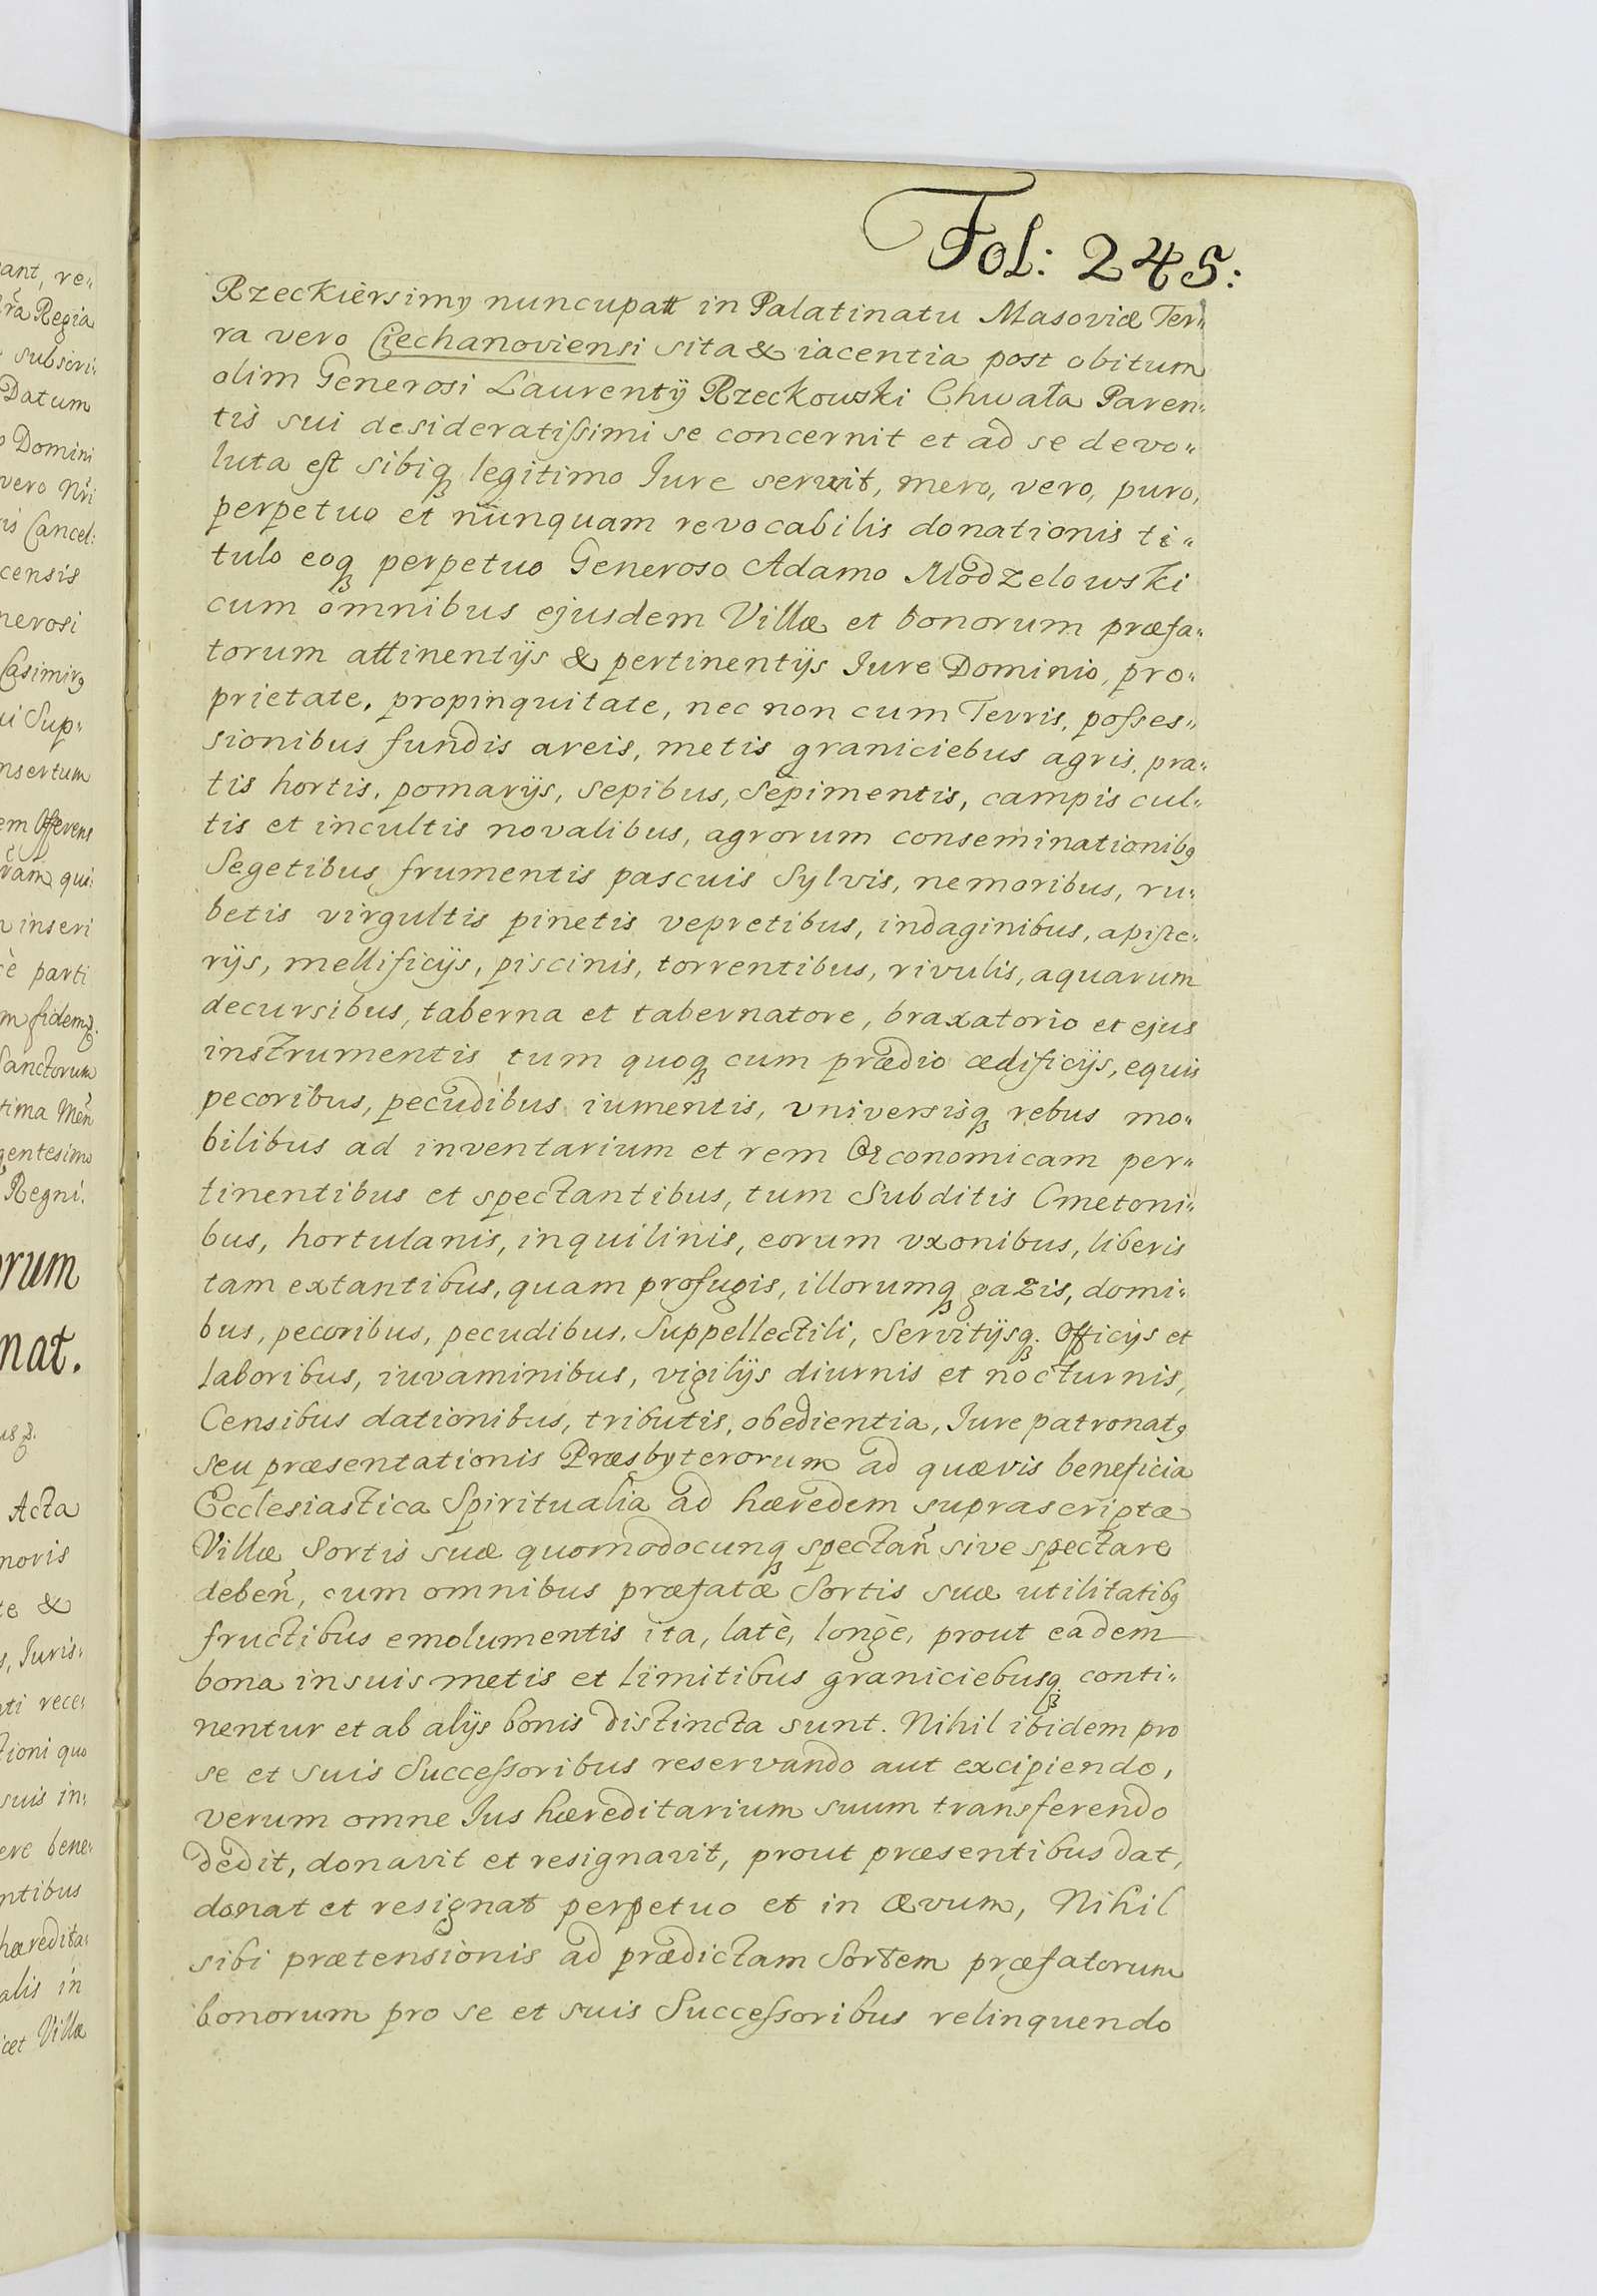 Fol: 245:
Rzeckiersimy nuncupatt in Palatinatu Masoviæ Ter„
ra vero Ciechanoviensi sita & iacentia post obitum
olim Generosi Laurentÿ Rzeckowski Chwała Paren„
tis sui desideratissimi se concernit et ad se devo„
luta est sibiqꝫ legitimo Iure servit, mero, vero, puro,
perpetuo et nunquam revocabilis donationis ti„
tulo eoqꝫ perpetuo Generoso Adamo Modzelowski
cum omnibus ejusdem Villæ et bonorum præfa„
torum attinentÿs & pertinentÿs Iure Dominio, pro„
prietate, propinquitate, nec non cum Terris, posses„
sionibus fundis areis, metis graniciebus agris, pra„
tis hortis, pomarÿs, sepibus, sepimentis, campis cul„
tis et incultis novalibus, agrorum conseminationibꝯ
Segetibus frumentis pascuis Sylvis, nemoribus, ru„
betis virgultis pinetis vepretibus, indaginibus, apiste„
rÿs, mellificÿs, piscinis, torrentibus, rivulis, aquarum
decursibus, taberna et tabernatore, braxatorio et ejus
instrumentis tum quoqꝫ cum prædio ædificÿs, equis
pecoribus, pecudibus iumentis, vniversisqꝫ rebus mo„
bilibus ad inventarium et rem Œconomicam per„
tinentibus et spectantibus, tum Subditis Cmetoni„
bus, hortulanis, inquilinis, eorum vxonibus, liberis
tam extantibus, quam profugis, illorumqꝫ gazis, domi„
bus, pecoribus, pecudibus, Suppellectili, Servitÿsqꝫ. Officÿs et
laboribus, iuvaminibus, vigilÿs diurnis et nocturnis,
Censibus dationibus, tributis, obedientia, Iure patronatꝯ
seu præsentationis Præsbyterorum ad quævis beneficia
Ecclesiastica Spiritualia ad hæredem suprascriptæ
Villæ Sortis suæ quomodocunqꝫ spectan̄ sive spectare
deben̄, cum omnibus præfatæ Sortis suæ utilitatibꝯ
fructibus emolumentis ita, latè, longè, prout eadem
bona in suis metis et limitibus graniciebusqꝫ conti„
nentur et ab alÿs bonis distincta sunt. Nihil ibidem pro
se et suis Successoribus reservando aut excipiendo,
verum omne Ius hæreditarium suum transferendo
dedit, donavit et resignavit, prout præsentibus dat,
donat et resignat perpetuo et in ævum, Nihil
sibi prætensionis ad prædictam Sortem præfatorum
bonorum pro se et suis Successoribus relinquendo